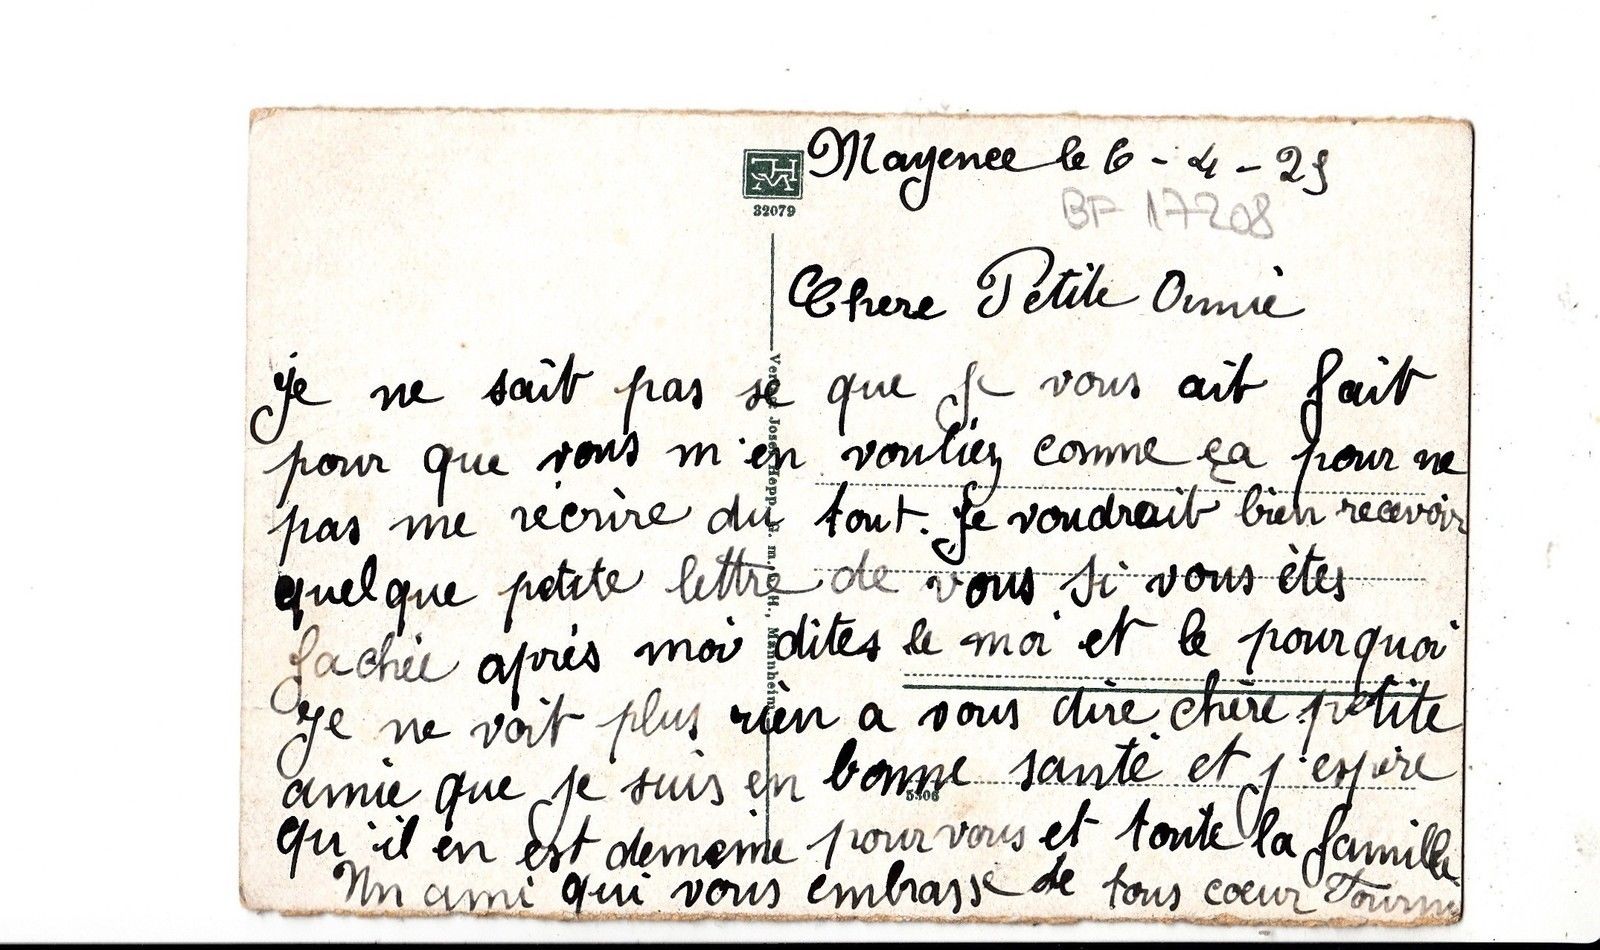 Mayence le 6 - 4 - 25
32079
BF 17208
Chere Petite Amie
Je ne sait pas se que Je vous ait fait
pour que vous m'en vouliez comme ça pour ne
pas me récrire du tout. Je voudrait bien recevoir
quelque petite lettre de vous si vous êtes
fachée aprés moi dites le moi et le pourquoi
Je ne voit plus rien a vous dire chère petite
amie que je suis en bonne santé et j'espère
qu'il en est dememe pour vous et toute la famille
Un ami qui vous embrasse de tous cœur
5306